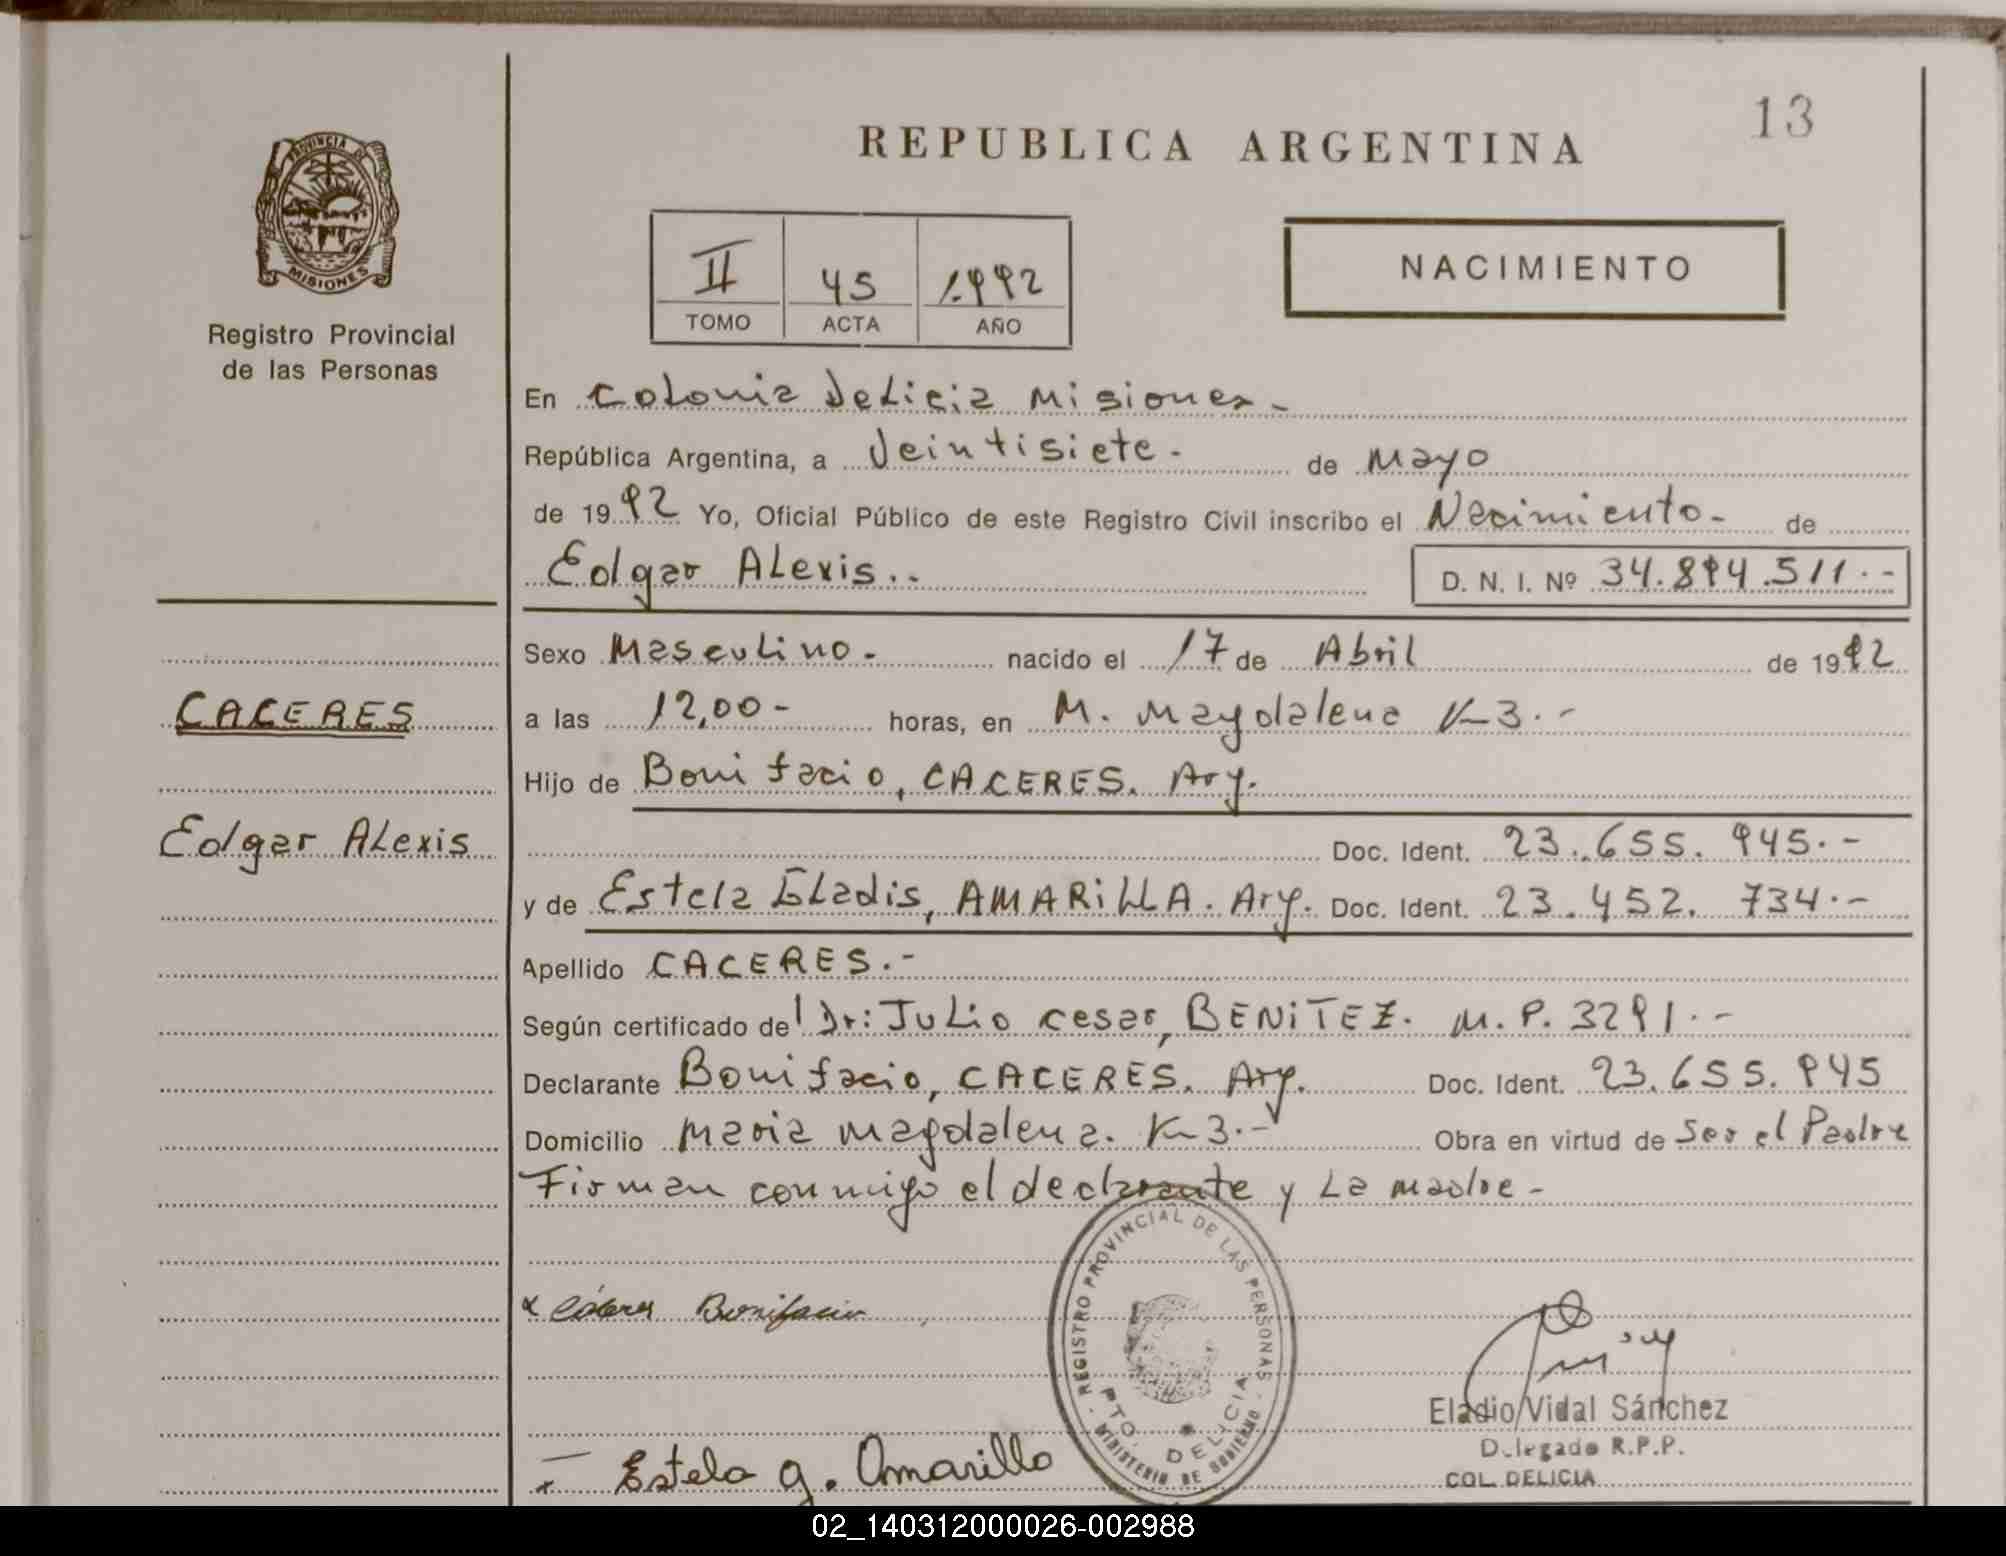 13
REPUBLICA ARGENTINA
PROVINCIA DE
MISIONES
Registro Provincial
de las Personas
II 45 1.992
TOMO ACTA AÑO
NACIMIENTO
En Colonia Delicia Misiones.-
República Argentina, a Veintisiete.- de Mayo
de 1992 Yo, Oficial Público de este Registro Civil inscribo el Nacimiento.- de
Edgar Alexis.. D. N. I. Nº 34.894.511.-
Sexo Masculino.- nacido el 17 de Abril de 1992
a las 12,00- horas, en M. Magdalena K-3.-
Hijo de Bonifacio, CACERES. Arg.
Doc. Ident. 23.655.945.-
y de Estela Gladis, AMARiLLA. Arg. Doc. Ident. 23.452.734.-
Apellido CACERES.-
Según certificado del Dr: Julio Cesar, BENiTEZ. M.P. 3291.-
Declarante Bonifacio, CACERES. Arg. Doc. Ident. 23.655.945
Domicilio Maria Magdalena. K-3.- Obra en virtud de Ser el Padre
Firman conmigo el declarante y La madre-
CACERES
Edgar Alexis
x Cáceres Bonifacio
x Estela g. Amarilla
REGISTRO PROVINCIAL DE LAS PERSONAS - MINISTERIO DE GOBIERNO -
PTO. DELICIA
Eladio Vidal Sánchez
Delegado R.P.P.
COL. DELICIA
02_140312000026-002988